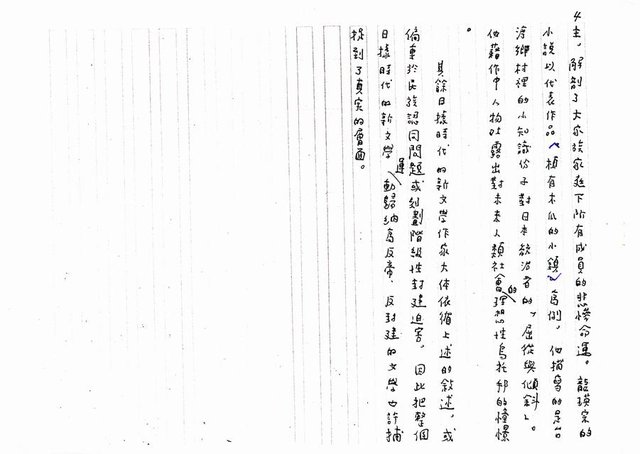 4主，解剖了大家族家庭下所有成員的悲慘命運。龍瑛宗的
小說以代表作品〈植有木瓜的小鎮〉為例，他描寫的是台
灣鄉村裡的小知識份子對日本統治者的「屈從與傾斜」。
他藉作中人物吐露出對未來人類社會的理想性烏托邦的憧憬
。
其餘日據時代的新文學作家大体依循上述的敘述，或
偏重於民族認同問題或刻劃階級性封建迫害，因此把整個
日據時代的新文學運動歸納為反帝、反封建的文學也許捕
捉到了真实的層面。